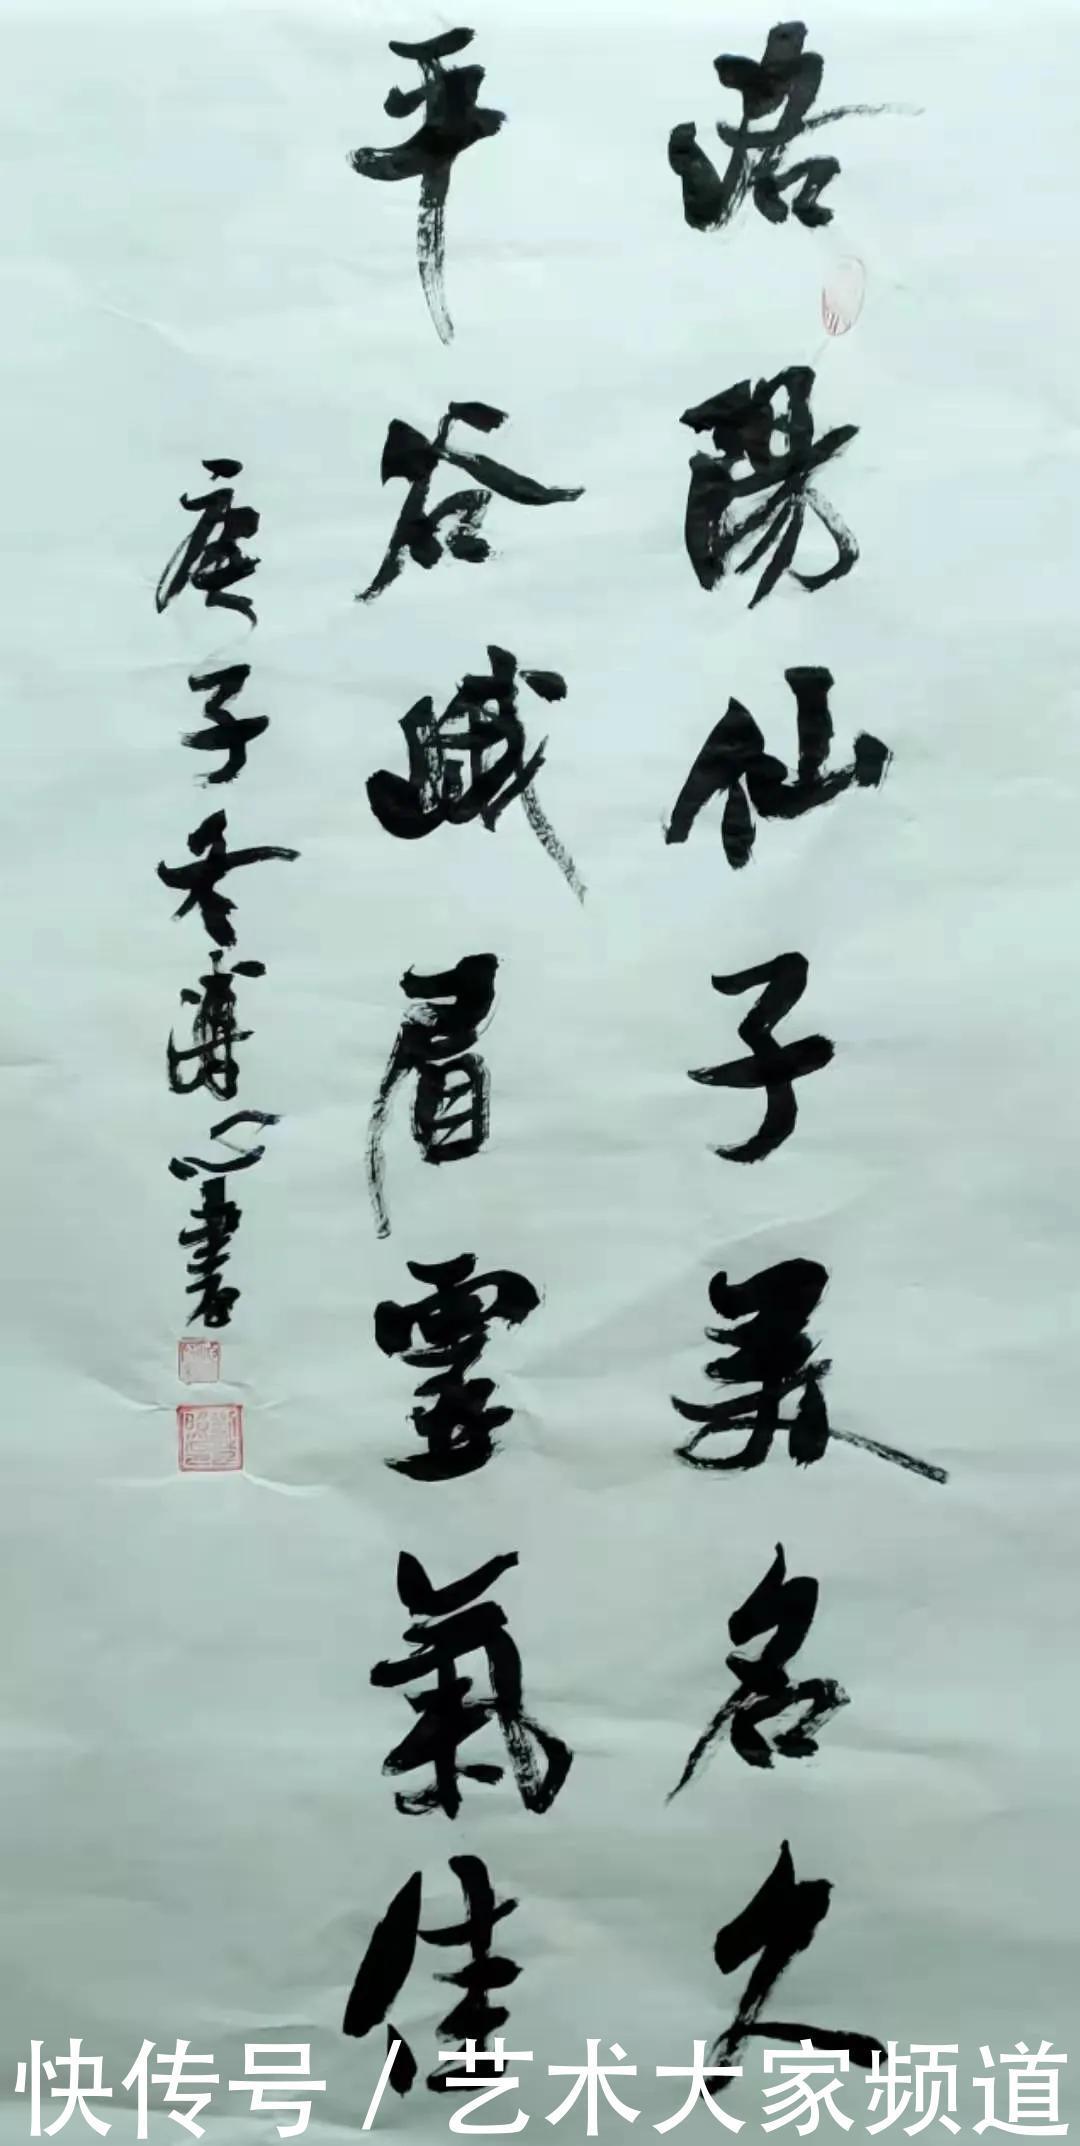 洛陽仙子美名久
平谷峨眉靈氣佳
庚子冬博心書
快传号/艺术大家频道